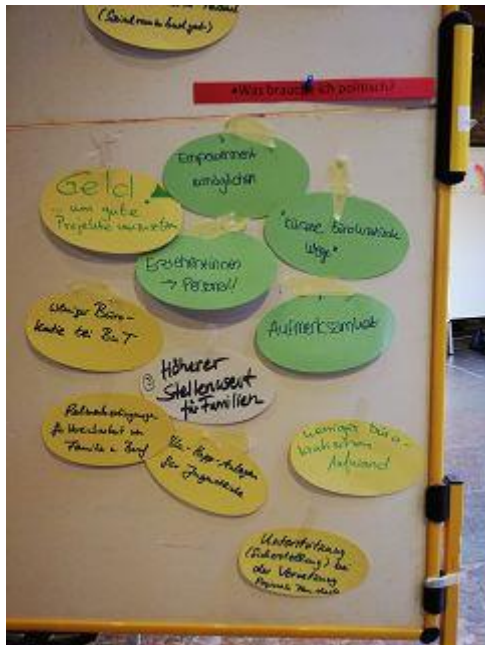 (Sozialraumbudget)
•Was brauche ich politisch?
Empowerment
ermöglichen
Geld
um gute
Projekte umzusetzen
"kürzere bürokratische
Wege"
Erzieher*innen
→ Personal!
weniger Büro-
kratie bei BuT
Aufmerksamkeit
Höherer
Stellenwert
für Familien
Rahmenbedingungen
für Vereinbarkeit von
Familie u. Beruf
für Jugendliche
weniger büro-
kratischen
Aufwand
Unterstützung
(Sicherstellung) bei
der Vernetzung